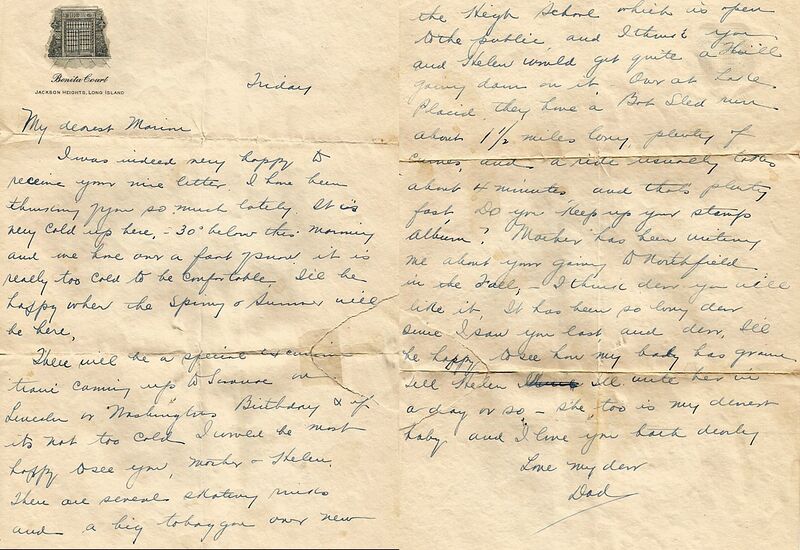 Benita Court
JACKSON HEIGHTS, LONG ISLAND
Friday
My dearest Marion
I was indeed very happy to
receive your nice letter. I have been
thinking of you so much lately. It is
very cold up here, - 30° below this morning
and we have over a foot of snow it is
really too cold to be comfortable. I'll be
happy when the Spring & Summer will
be here.
There will be a special excursion
train coming up to Saranac on
Lincoln or Washingtons Birthday & if
its not too cold I would be most
happy to see you, Mother & Helen.
There are several skating rinks
and a big toboggan over near
the High School which is open
to the public and I think you
and Helen would get quite a thrill
going down on it. Over at Lake
Placid they have a Bob Sled run
about 1½ miles long, plenty of
curves, and a ride usually takes
about 4 minutes and thats plenty
fast. Do you keep up your stamp
album? Mother has been writing
me about your going to Northfield
in the Fall, - I think dear you will
like it. It has been so long dear
since I saw you last and dear, I'll
be happy to see how my baby has grown.
Tell Helen I'll write her in
a day or so - she, too is my dearest
baby and I love you both dearly
Love my dear
Dad